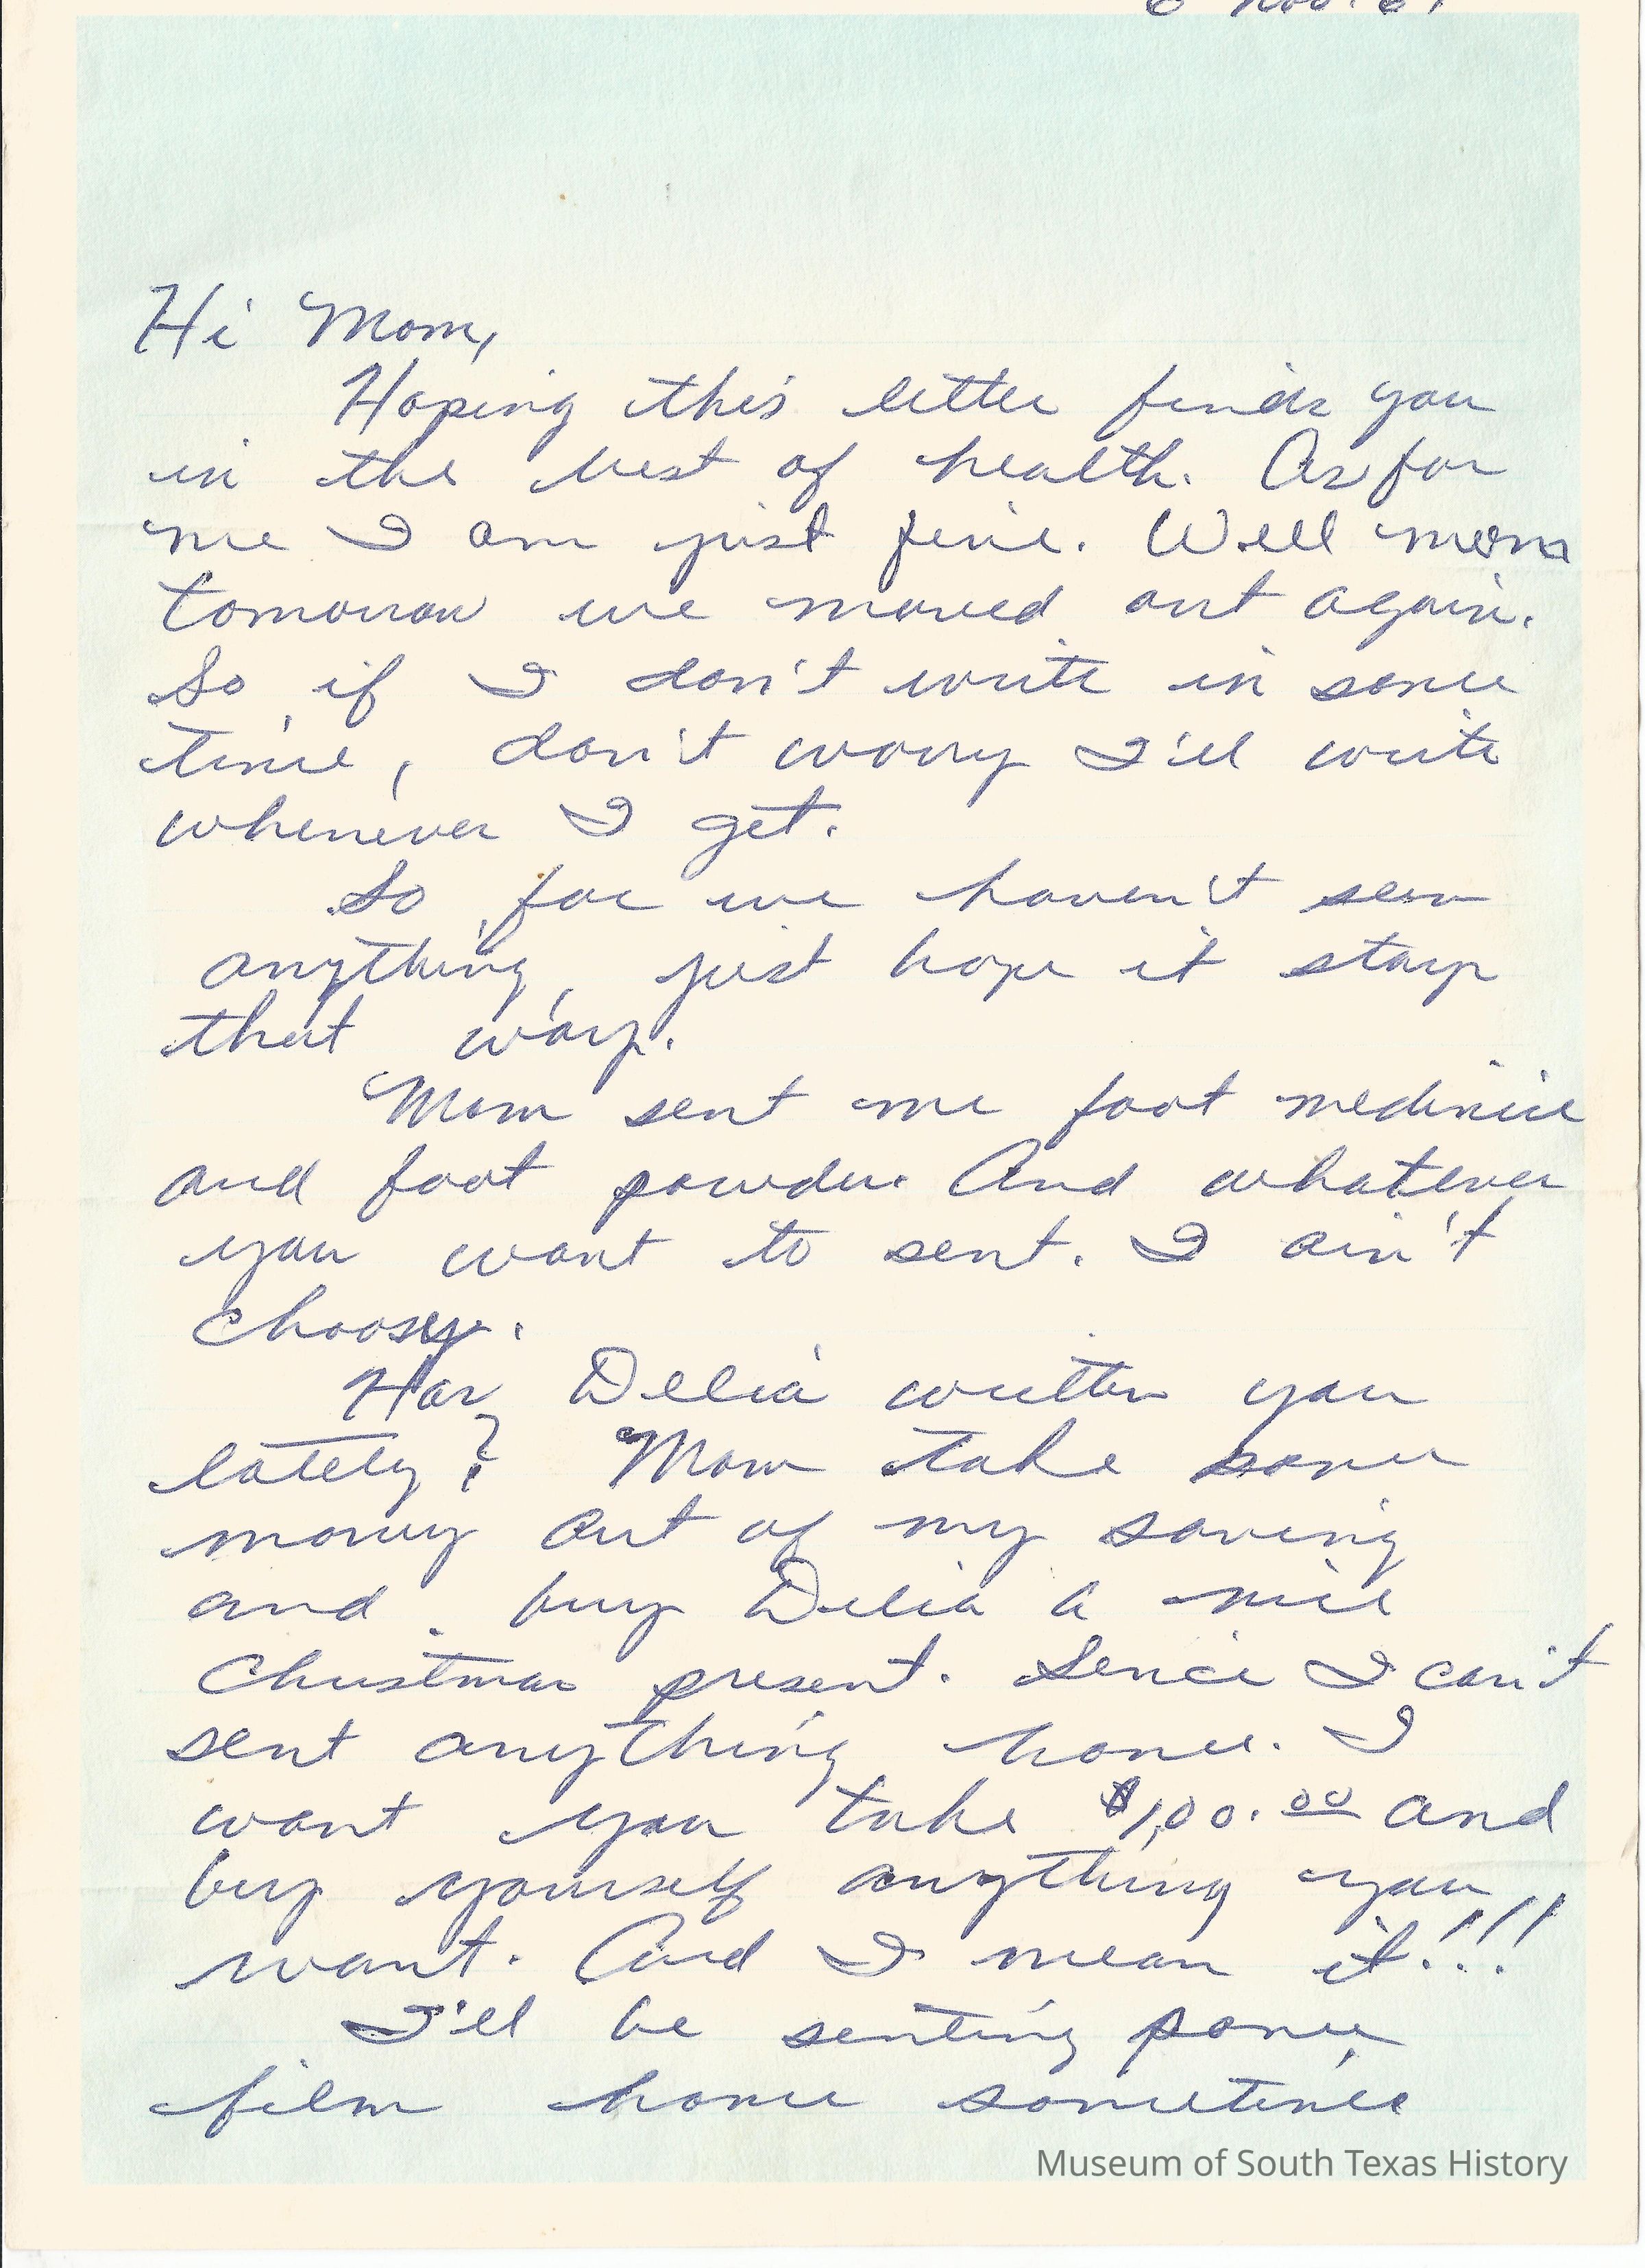 Nov.
Hi Mom,
Hoping this letter finds you
in the best of health. As for
me I am just fine. Well mom
tomorrow we moved out again.
So if I don't write in some
time, don't worry I'll write
whenever I get.
So far we haven't seen
anything, just hope it stays
that way.
Mom sent me foot medicine
and foot powder. And whatever
you want to sent. I ain't
choosey.
Has Delia written you
lately? Mom take some
money out of my saving
and buy Delia a nice
Christmas present. Since I can't
sent anything home. I
want you take $100.00 and
buy yourself anything you
want. And I mean it!!!
I'll be senting some
film home sometimes
Museum of South Texas History